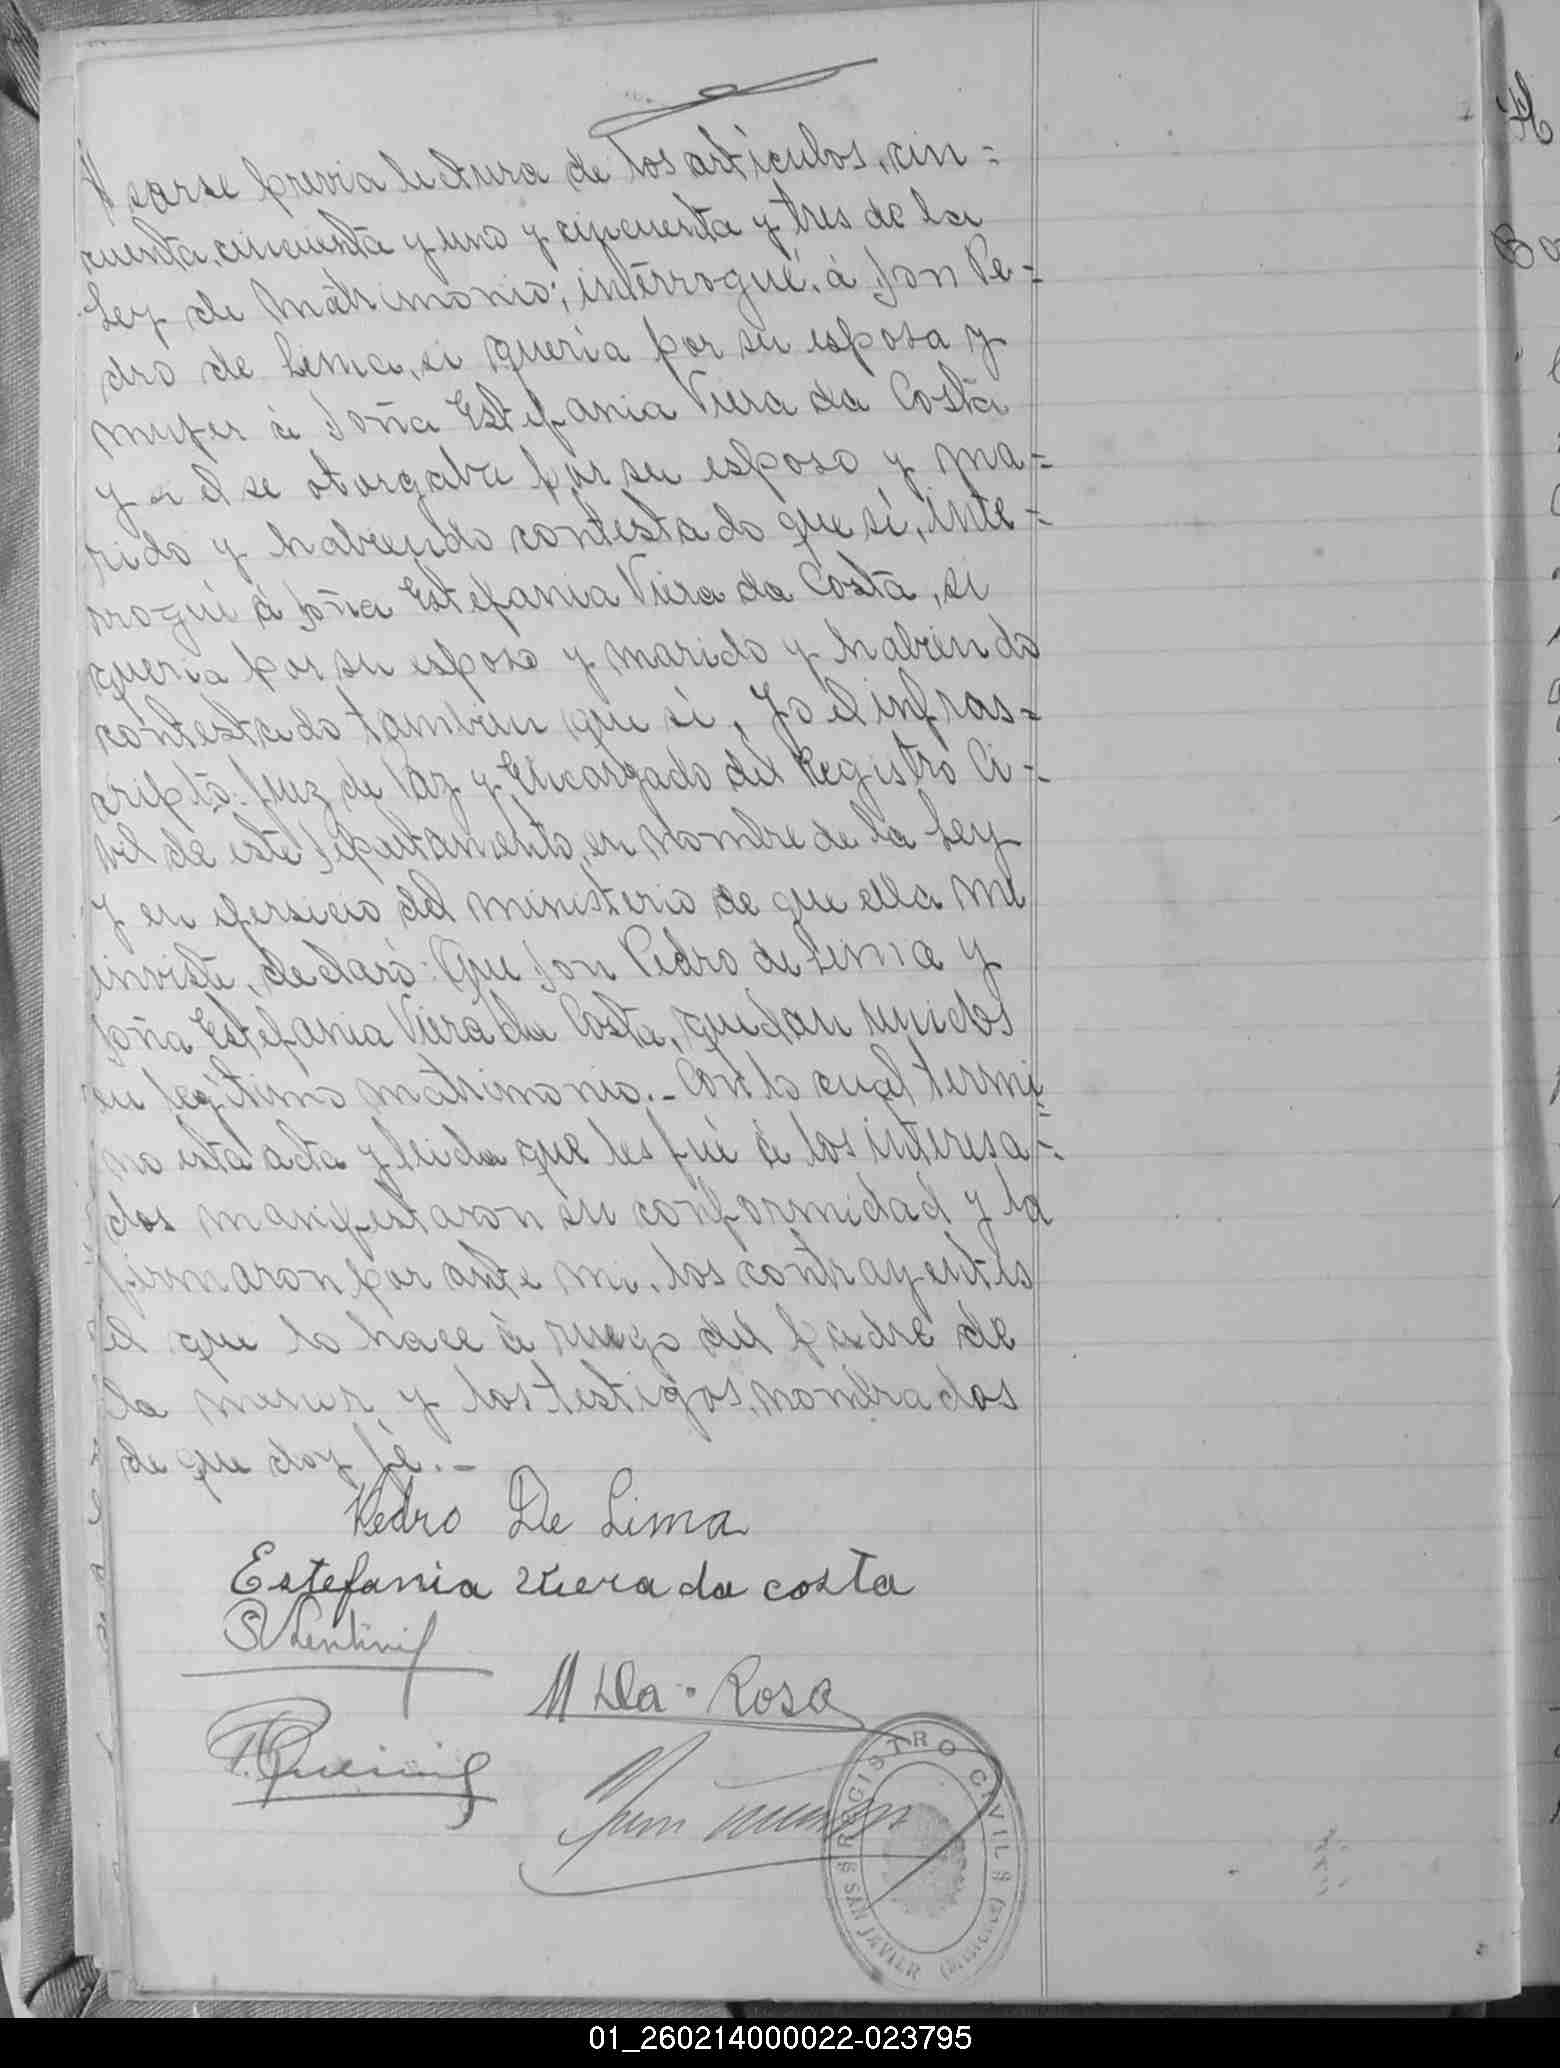 sarse previa lectura de los artículos, cin=
cuenta, cincuenta y uno y cincuenta y tres de la
Ley de Matrimonio; interrogué, á Don Pe=
dro de Lima, si queria por su esposa y
mujer á Doña Estefania Viera da Costa
y si el se otorgaba por su esposo y ma=
rido y habiendo contestado que sí, inte=
rrogué á Doña Estefania Viera da Costa, si
queria por su esposo y marido y habiendo
contestado tambien que si, Yo el infras=
cripto Juez de Paz y Encargado del Registro Ci=
vil de este Departamento, en nombre de la Ley
y en ejersicio del ministerio de que ella me
inviste, declaro: Que Don Pedro de Lima y
Doña Estefania Viera da Costa, quedan unidos
en legítimo matrimonio.- Con lo cual termi=
no esta acta y leida que les fué á los interesa=
dos manifestaron su conformidad y la
firmaron por ante mi, los contrayentes
el que lo hace á ruego del padre de
la menor y los testigos, nombrados
de que doy fé.-
Pedro De Lima
Estefania Viera da costa
M Da Rosa
REGISTRO CIVIL
SAN JAVIER (Misiones)
01_260214000022-023795